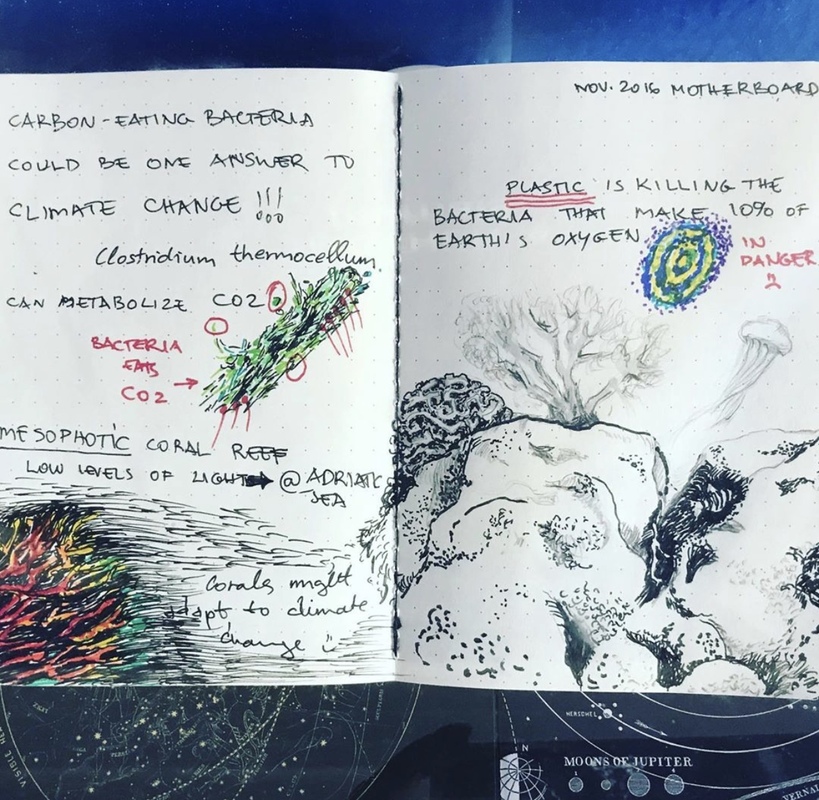 CARBON-EATING BACTERIA
COULD BE ONE ANSWER TO
CLIMATE CHANGE !!!
Clostridium thermocellum
CAN METABOLIZE CO2
BACTERIA
EATS
CO2
MESOPHOTIC CORAL REEF
LOW LEVELS OF LIGHT → @ ADRIATIC
SEA
Corals might
adapt to climate
change
NOV. 2016 MOTHERBOARD
PLASTIC IS KILLING THE
BACTERIA THAT MAKE 10% OF
EARTH'S OXYGEN
IN
DANGER
VISIBLE
HERSCHEL
N
MOONS OF JUPITER
VERNAL